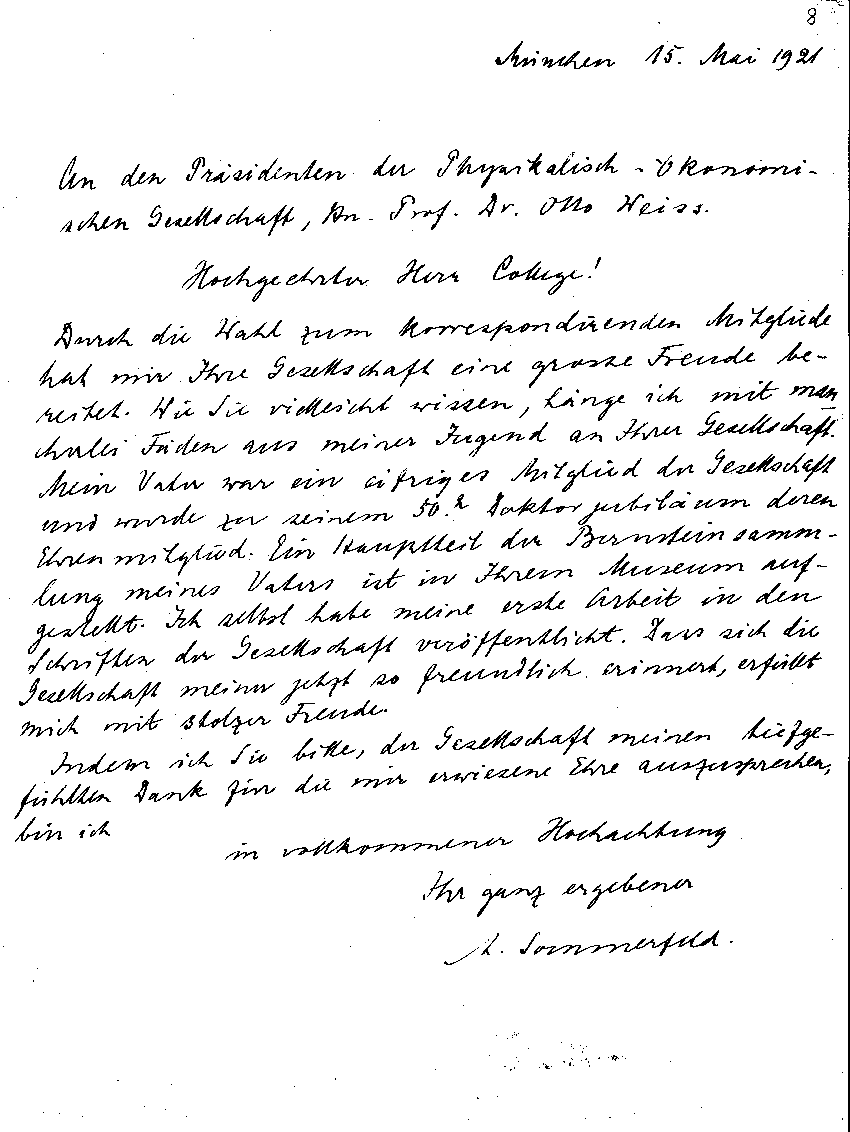 8
München 15. Mai 1921
An den Präsidenten der Physikalisch-ökonomi-
schen Gesellschaft, Hn. Prof. Dr. Otto Weiss.
Hochgeehrter Herr College!
Durch die Wahl zum korrespondirenden Mitgliede
hat mir Ihre Gesellschaft eine grosse Freude be-
reitet. Wie Sie vielleicht wissen, hänge ich mit man
cherlei Fäden aus meiner Jugend an Ihrer Gesellschaft.
Mein Vater war ein eifriges Mitglied der Gesellschaft
und wurde zu seinem 50. Doktorjubiläum deren
Ehrenmitglied. Ein Hauptteil der Bernsteinsamm-
lung meines Vaters ist in Ihrem Museum auf-
gestellt. Ich selbst habe meine erste Arbeit in den
Schriften der Gesellschaft veröffentlicht. Dass sich die
Gesellschaft meiner jetzt so freundlich erinnert, erfüllt
mich mit stolzer Freude.
Indem ich Sie bitte, der Gesellschaft meinen tiefge-
fühlten Dank für die mir erwiesene Ehre auszusprechen,
bin ich
in vollkommener Hochachtung
Ihr ganz ergebener
A. Sommerfeld.